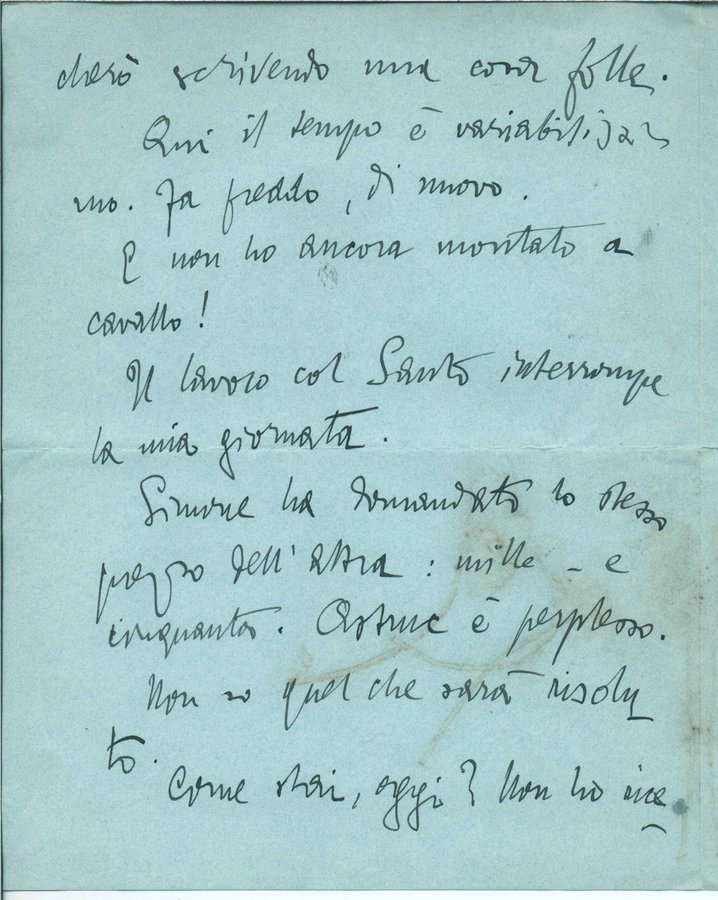 cherò scrivendo una cosa folle.
Qui il tempo è variabilissi
mo. Fa freddo, di nuovo.
E non ho ancora montato a
cavallo!
Il lavoro col Santo interrompe
la mia giornata.
Simone ha domandato lo stesso
prezzo dell'altra: mille - e
cinquanta. Astruc è perplesso.
Non so quel che sarà risolu
to.
Come stai, oggi? Non ho